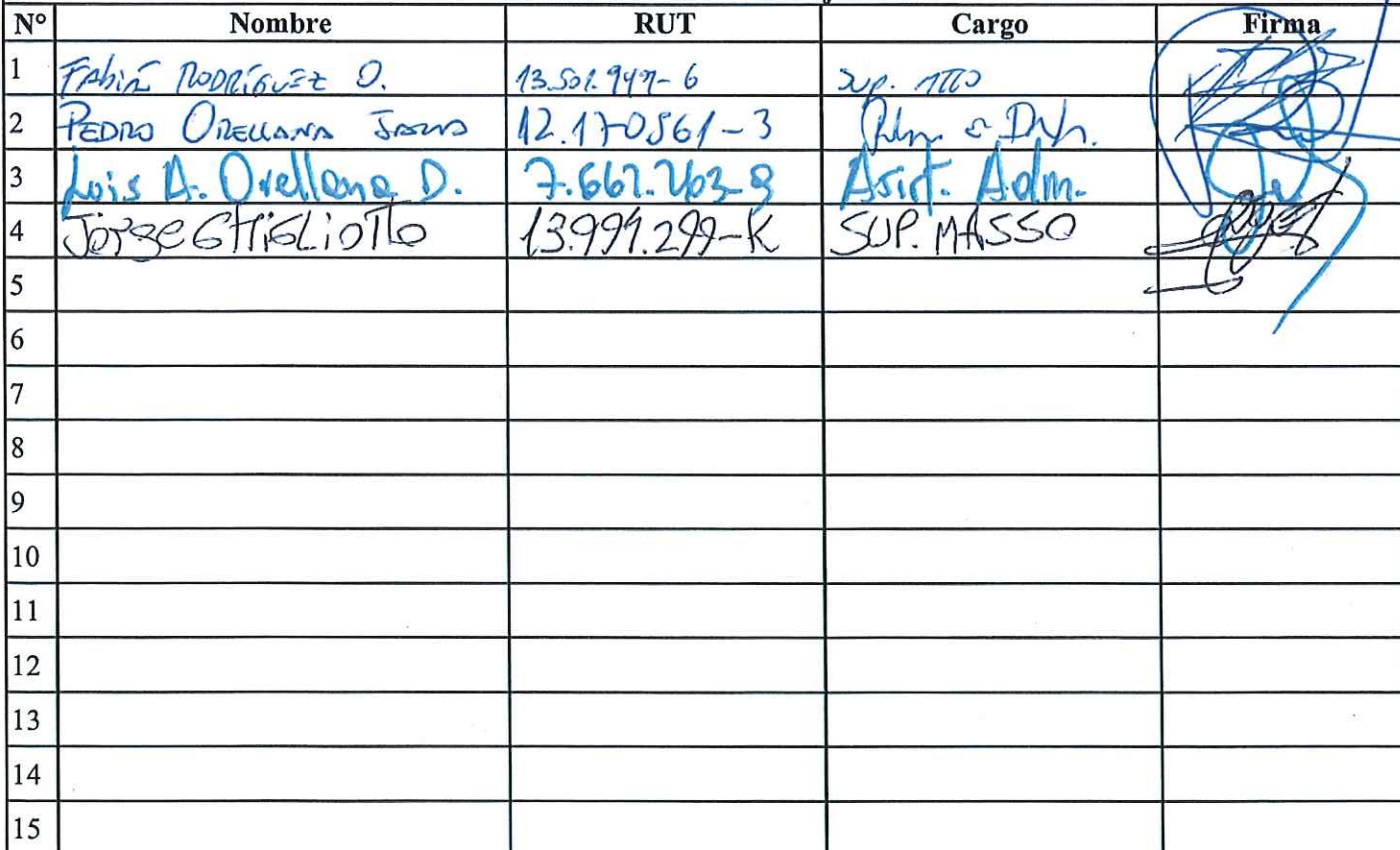 N° Nombre RUT Cargo Firma
1 Fabián RODRÍGUEZ O. 13.501.949-6 SUP. MTTO
2 PEDRO ORELLANA 12.170561-3
3 Luis A. Orellana D. 7.661.263-9 Asist. Adm.
4 Jorge GHIGLIOTTO 13.991.299-K SUP. MASSO
5
6
7
8
9
10
11
12
13
14
15